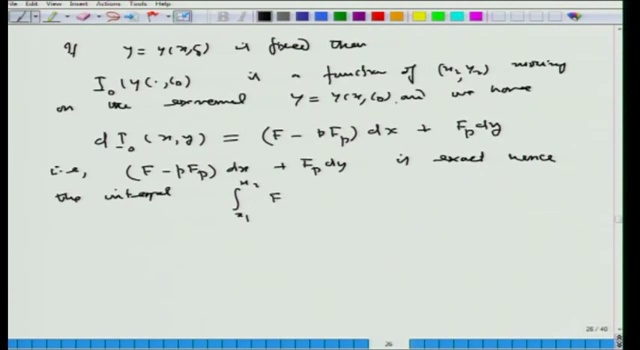 File Edit View Insert Actions Tools Help
If y = y(x, c₀) is fixed then
I₀(y(·, c₀) is a function of (x₂, y₂) moving
on the extremal y = y(x, c₀) and we have
d I₀(x, y) = (F − pFₚ) dx + Fₚ dy
i.e, (F − pFₚ) dx + Fₚ dy is exact hence
the integral ∫ₓ₁^x₂ F
26 / 40
26